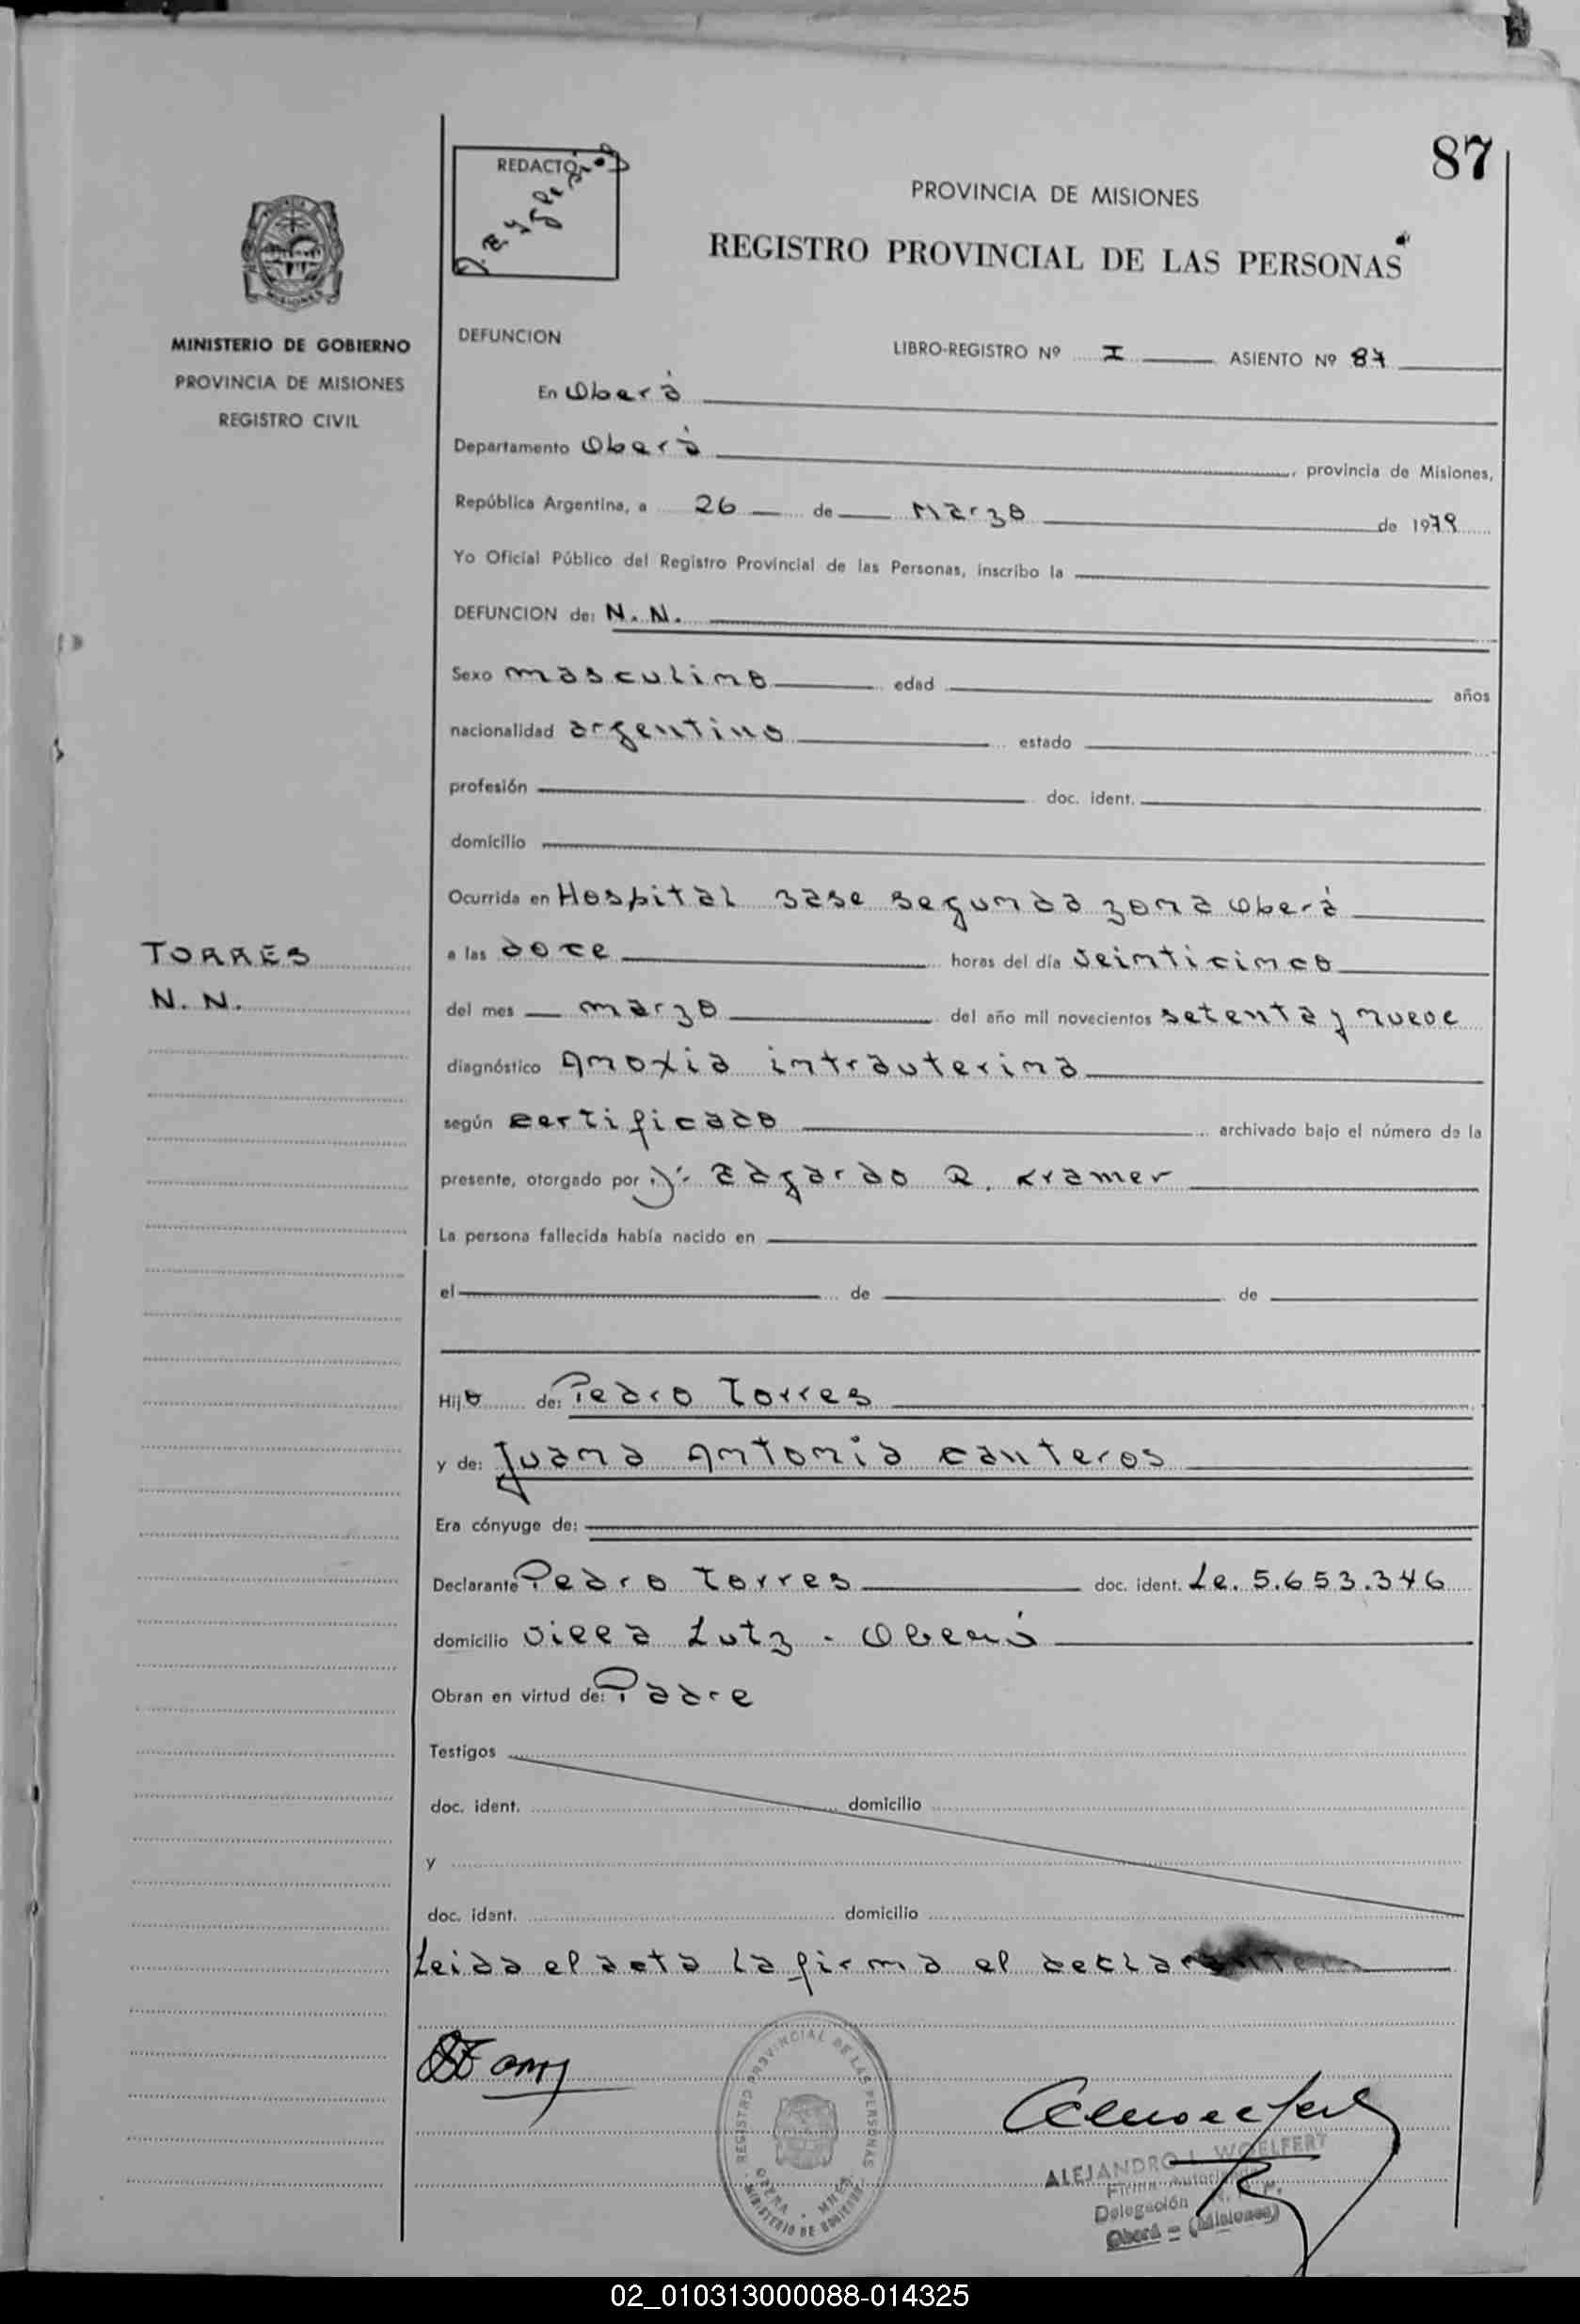 87
REDACTO
PROVINCIA DE MISIONES
REGISTRO PROVINCIAL DE LAS PERSONAS
MISIONES
MINISTERIO DE GOBIERNO
PROVINCIA DE MISIONES
REGISTRO CIVIL
DEFUNCION
LIBRO-REGISTRO Nº I ASIENTO Nº 87
En Oberá
Departamento Oberá, provincia de Misiones,
República Argentina, a 26 de Marzo de 1979
Yo Oficial Público del Registro Provincial de las Personas, inscribo la
DEFUNCION de: N. N.
Sexo masculino edad años
nacionalidad argentino estado
profesión doc. ident.
domicilio
Ocurrida en Hospital base segunda zona Oberá
TORRES
N. N.
a las doce horas del día veinticinco
del mes marzo del año mil novecientos setenta y nueve
diagnóstico Anoxia intrauterina
según certificado archivado bajo el número de la
presente, otorgado por Dr. Edgardo R. Kramer
La persona fallecida había nacido en
el de de
Hijo de: Pedro Torres
y de: Juana Antonia Canteros
Era cónyuge de:
Declarante Pedro Torres doc. ident. Le. 5.653.346
domicilio Villa Lutz - Oberá
Obran en virtud de: Padre
Testigos
doc. ident. domicilio
y
doc. ident. domicilio
Leida el acta la firma el declarante
REGISTRO PROVINCIAL DE LAS PERSONAS
MINISTERIO DE GOBIERNO
OBERA - MNES.
ALEJANDRO L. WOELFERT
Firma Autorizada
Delegación R. P. P.
Oberá - (Misiones)
02_010313000088-014325